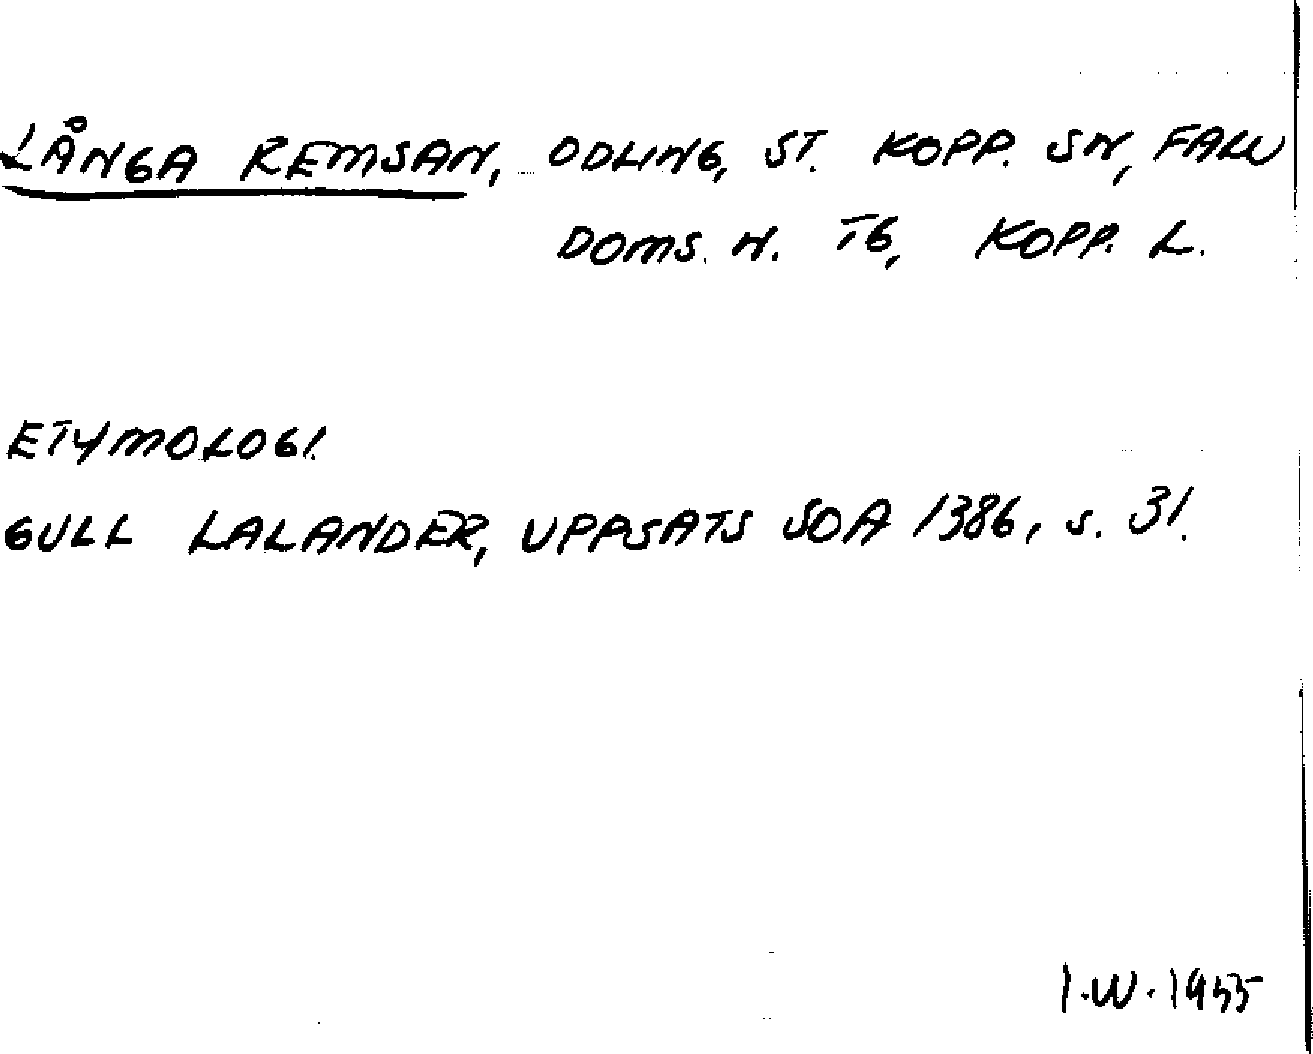 LÅNGA REMSAN, ODLING, ST. KOPP. SN, FALU
DOMS. N. TG, KOPP. L.
ETYMOLOGI.
GULL LALANDER, UPPSATS SOA 1386, S. 31.
I.W. 1955